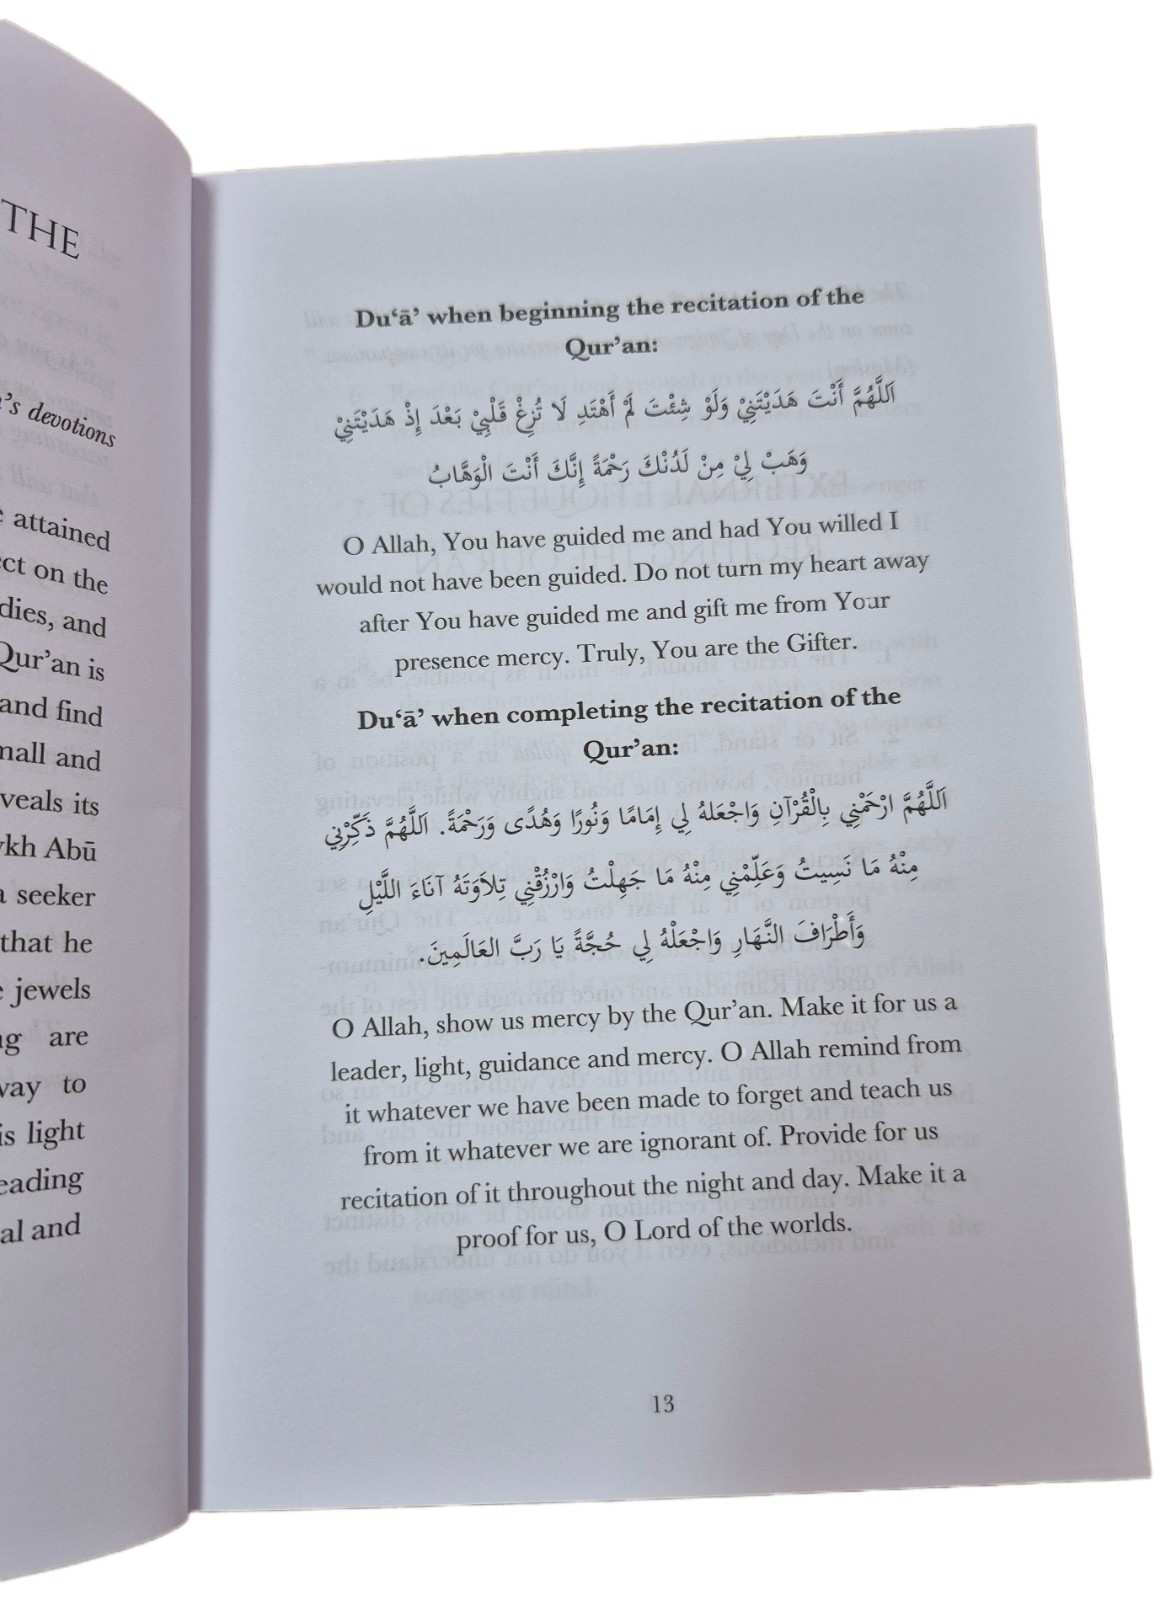 THE
's devotions
attained
ct on the
dies, and
Qur'an is
and find
mall and
veals its
ykh Abū
a seeker
that he
jewels
ng are
way to
is light
eading
al and
Du'ā' when beginning the recitation of the
Qur'an:
اَللَّهُمَّ أَنْتَ هَدَيْتَنِيْ وَلَوْ شِئْتَ لَمْ أَهْتَدِ لَا تُزِغْ قَلْبِيْ بَعْدَ إِذْ هَدَيْتَنِيْ
وَهَبْ لِيْ مِنْ لَدُنْكَ رَحْمَةً إِنَّكَ أَنْتَ الْوَهَّابُ
O Allah, You have guided me and had You willed I
would not have been guided. Do not turn my heart away
after You have guided me and gift me from Your
presence mercy. Truly, You are the Gifter.
Du'ā' when completing the recitation of the
Qur'an:
اَللَّهُمَّ ارْحَمْنِي بِالْقُرْآنِ وَاجْعَلهُ لِي إِمَامًا وَنُورًا وَهُدًى وَرَحْمَةً. اَللَّهُمَّ ذَكِّرْنِي
مِنْهُ مَا نَسِيتُ وَعَلِّمْنِي مِنْهُ مَا جَهِلْتُ وَارْزُقْنِي تِلاَوَتَهُ آنَاءَ اللَّيْلِ
وَأَطْرَافَ النَّهَارِ وَاجْعَلْهُ لِي حُجَّةً يَا رَبَّ العَالَمِينَ.
O Allah, show us mercy by the Qur'an. Make it for us a
leader, light, guidance and mercy. O Allah remind from
it whatever we have been made to forget and teach us
from it whatever we are ignorant of. Provide for us
recitation of it throughout the night and day. Make it a
proof for us, O Lord of the worlds.
13